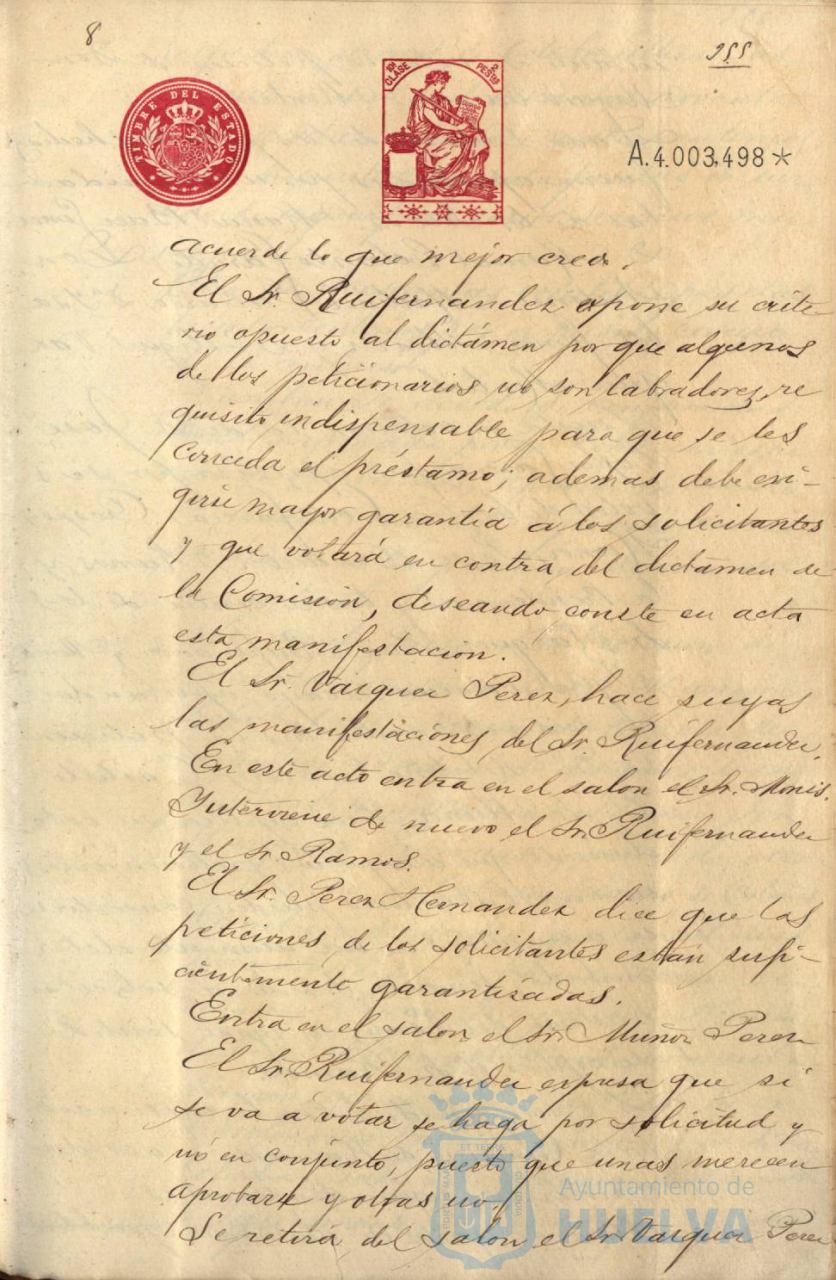 8
255
TIMBRE DEL ESTADO
10ª CLASE
2 PESTAS
A.4.003,498*
acuerde lo que mejor crea.
El Sr. Ruifernandez expone su crite-
rio opuesto al dictámen porque algunos
de los peticionarios no son labradores, re
quisito indispensable para que se les
conceda el préstamo; ademas debe exi-
girse mayor garantía á los solicitantes
y que votará en contra del dictamen de
la Comisión, deseando conste en acta
esta manifestacion.
El Sr. Vazquez Perez, hace suyas
las manifestaciónes del Sr. Ruifernandez.
En este acto entra en el salon el Sr. Monis.
Interviene de nuevo el Sr. Ruifernandez
y el Sr. Ramos.
El Sr. Perez Hernandez dice que las
peticiones de los solicitantes están sufi-
cientemente garantisadas.
Entra en el salon el Sr. Muñoz Perez
El Sr. Ruifernandez espresa que si
se va á votar se haga por solicitud y
nó en conjunto, puesto que unas merecen
aprobarse y otras no.
Se retira del salon el Sr. Vazquez Perez
Ayuntamiento de
HUELVA